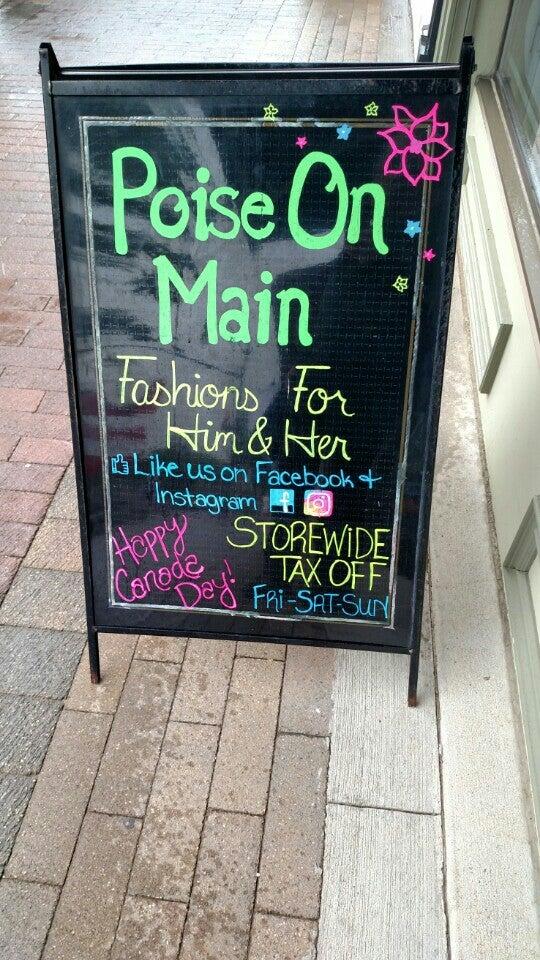 Poise On
Main
Fashions For
Him & Her
Like us on Facebook +
Instagram
Happy
Canada
Day!
STOREWIDE
TAX OFF
FRI-SAT-SUN